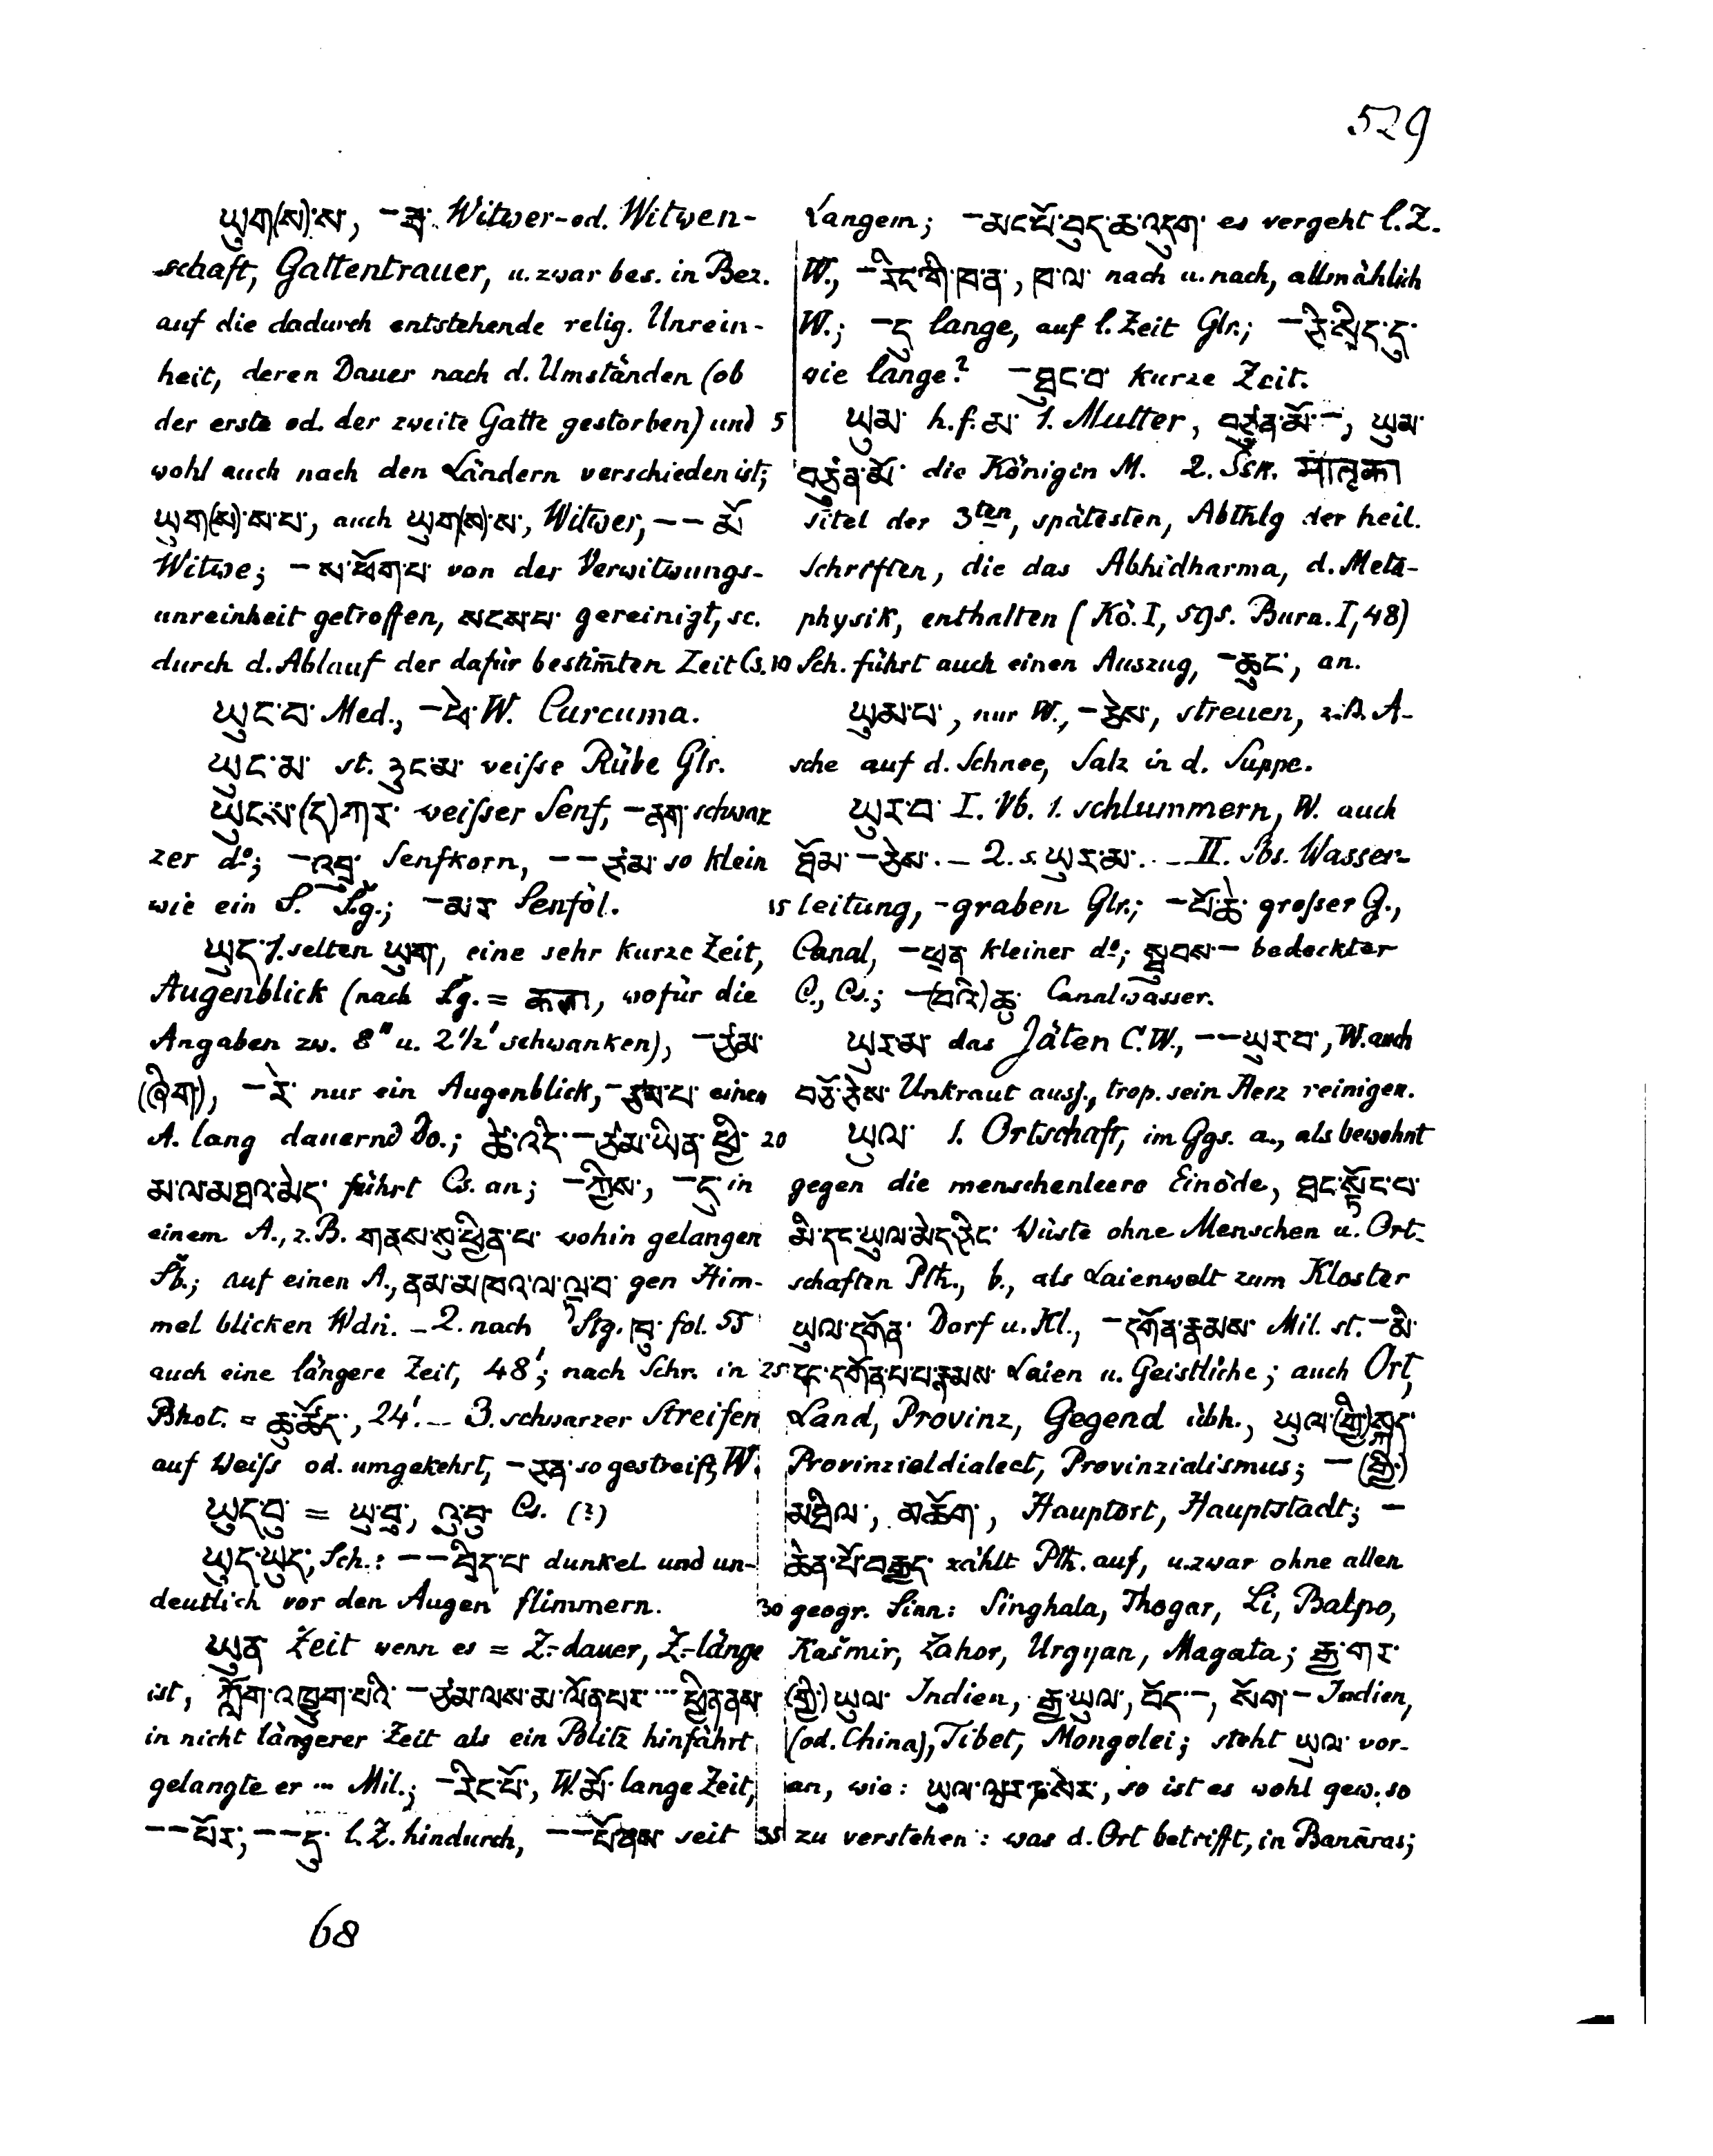 529
ཡུག(ས)་ས་, – ཟ་ Witwer- od. Witwen-
schaft, Gattentrauer, u. zwar bes. in Bez.
auf die dadurch entstehende relig. Unrein-
heit, deren Dauer nach d. Umständen (ob
der erste od. der zweite Gatte gestorben) und 5
wohl auch nach den Ländern verschieden ist;
ཡུག(ས)་ས་པ་, auch ཡུག(ས)་ས་, Witwer, – – མོ
Witwe; – ས་ཕོག་པ་ von der Verwitwungs-
unreinheit getroffen, སངས་པ་ gereinigt, sc.
durch d. Ablauf der dafür bestim̄ten Zeit Cs. 10
ཡུང་བ་ Med., – W. Curcuma.
ཡུང་མ་ st. ཉུང་མ་ weiſse Rübe Glr.
ཡུངས་(ད)ཀར་ weiſser Senf, – ནག་ schwar
zer do; – འབྲུ་ Senfkorn, – – ཙམ་ so klein
wie ein S. Lg.; – མར Senföl. 15
ཡུད་ 1. selten ཡུག, eine sehr kurze Zeit,
Augenblick (nach Lg. = , wofür die
Angaben zw. 8" u. 2 1/2' schwanken), – ཙམ་
(ཞིག་), – རེ་ nur ein Augenblick, – ཙམ་པ་ einen
A. lang dauernd Do.; ཚེ་འདི་ – ཙམ་ཡིན་ཕྱི་ 20
མ་ལ་མཐའ་མེད་ führt Cs. an; – ཀྱིས་, – དུ་ in
einem A., z. B. གནས་སུ་ཕྱིན་པ་ wohin gelangen
Tb.; auf einen A., ནམ་མཁའ་ལ་ལྟ་བ་ gen Him-
mel blicken Wdn. – 2. nach Stg. ཁུ་ fol. 55
auch eine längere Zeit, 48'; nach Schr. in 25
Bhot. = ཆུ་ཚོད་, 24'. – 3. schwarzer Streifen
auf Weiſs od. umgekehrt, – ཅན་ so gestreift, W.
ཡུད་བུ་ = ཡུ་བུ་, འུ་བུ་ Cs. (?)
ཡུད་ཡུད་, Sch.: – – བྱེད་པ་ dunkel und un-
deutlich vor den Augen flimmern. 30
ཡུན་ Zeit wenn es = Z.-dauer, Z.-länge
ist, གློག་འཁྱུག་པའི་ – ཙམ་ལས་མ་ལོན་པར ... ཕྱིན་ནས
in nicht längerer Zeit als ein Blitz hinfährt
gelangte er ... Mil.; – རིང་པོ་, W. མོ་ lange Zeit,
– – པོར་, – – དུ་ l. Z. hindurch, – – པོ་ནས་ seit 35
Langem; – མང་པོ་བུད་ཆ་འདུག་ es vergeht l. Z.
W., – རིང་གི་ཁ་ན་, ཁ་ལ་ nach u. nach, allmählich
W.; – དུ lange, auf l. Zeit Glr.; – ཅི་སྲིད་དུ་
wie lange? – ཐུང་བ་ kurze Zeit.
ཡུམ་ h. f. མ་ 1. Mutter, བཙུན་མོ་ –, ཡུམ་
བཙུན་མོ་ die Königin M. 2. Ssk. मातृका
Titel der 3ten, spätesten, Abthlg der heil.
Schriften, die das Abhidharma, d. Meta-
physik, enthalten (Kö. I, 595. Burn. I, 48)
Sch. führt auch einen Auszug, – ཆུང་, an.
ཡུམ་པ་, nur W., – ཅེས་, streuen, z. B. A-
sche auf d. Schnee, Salz in d. Suppe.
ཡུར་བ I. Vb. 1. schlummern, W. auch
ཐོམ་ – ཅེས་. – 2. s. ཡུར་མ་. – II. Sbs. Wasser-
leitung, -graben Glr.; – པོ་ཆེ་ groſser G.,
Canal, – ཕྲན kleiner do; སྦུབས་ – bedeckter
C., Cs.; – (བའི་) ཆུ Canalwasser.
ཡུར་མ das Jäten C. W., – – ཡུར་བ་, W. auch
བཅོ་ཅེས་ Unkraut ausj., trop. sein Herz reinigen.
ཡུལ་ 1. Ortschaft, im Ggs. a., als bewohnt
gegen die menschenleere Einöde, ཐང་སྟོང་པ་
མི་དང་ཡུལ་མེད་ཅིང་ Wüste ohne Menschen u. Ort-
schaften Pth., b., als Laienwelt zum Kloster
ཡུལ་དགོན་ Dorf u. Kl., – དགོན་རྣམས་ Mil. st. – མི་
དང་དགོན་པ་པ་རྣམས་ Laien u. Geistliche; auch Ort,
Land, Provinz, Gegend übh., ཡུལ་(གྱི་)སྐད་
Provinzialdialect, Provinzialismus; – (གྱི་)
མཐིལ་, མཆོག་, Hauptort, Hauptstadt; –
ཆེན་པོ་བརྒྱད་ zählt Pth. auf, u. zwar ohne allen
geogr. Sinn: Singhala, Thogar, Li, Balpo,
Kašmir, Zahor, Urgyan, Magata; རྒྱ་གར་
(གྱི་) ཡུལ་ Indien, རྒྱ་ཡུལ་, བོད་ –, སོག་ – Indien,
(od. China), Tibet, Mongolei; steht ཡུལ་ vor-
an, wie: , so ist es wohl gew. so
zu verstehen: was d. Ort betrifft, in Banāras;
68